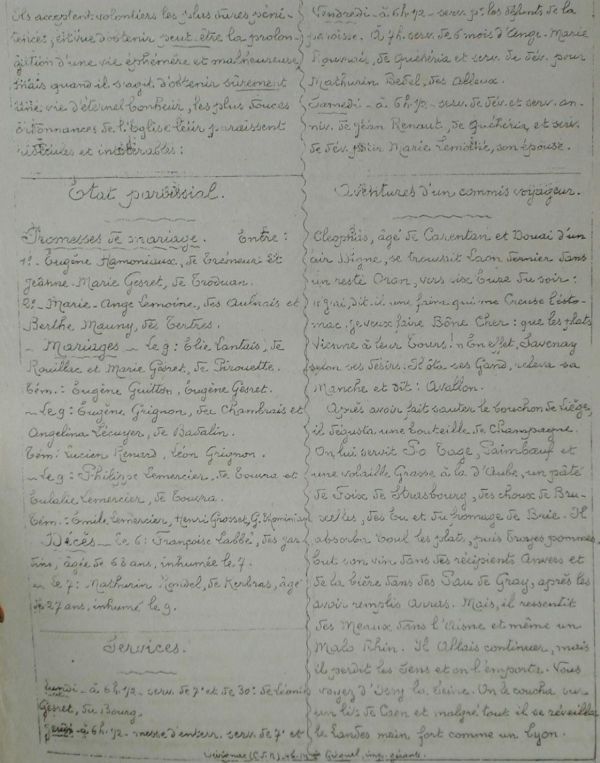 Ils acceptent volontiers les plus dures péni-
tences, en vue d'obtenir peut-être la prolon-
gation d'une vie éphémère et malheureuse,
mais quand il s'agit d'obtenir sûrement
une vie d'éternel bonheur, les plus douces
ordonnances de l'Eglise leur paraissent
ridicules et intolérables:
Etat paroissial.
Promesses de mariage. Entre:
1º- Eugène Hamoniaux, de Trémeur Et
Jeanne-Marie Gesret, de Troduan.
2º- Marie-Ange Lemoine, des Aulnais et
Berthe Mauny, des Tertres.
- Mariages - Le 9: Elie Lantais, de
Rouillac et Marie Gesret, de Pirouette.
Tém.: Eugène Guitton, Eugène Gesret.
- Le 9: Eugène Grignon, des Chambrais et
Angelina Lécuyer, de Badalin.
Tém: Lucien Renard, Léon Grignon.
- Le 9: Philippe Lemercier, de Toura et
Eulalie Lemercier, de Toura.
Tém.: Emile Lemercier, Henri Grosset, G.
Décès - Le 6: Françoise Labbé, des
âgée de 68 ans, inhumée le 7.
- Le 7: Mathurin de Kerbras, âgé
de 27 ans, inhumé le 9.
Services.
Lundi - à 6h.1/2 - serv. de 7e et de 30e de Léonie
Gesret, du Bourg.
Jeudi - à 6h.1/2 - messe d'enterr. serv. de 7e et
Vendredi - à 6h.1/2 - serv. pr les défunts de la
paroisse. A 7h. serv. de 6 mois d'Ange-Marie
Rouvrais, de Quéhéria et serv. de dév. pour
Mathurin Bedel, des Alleux.
Samedi - à 6h.1/2 - serv. de dév. et serv. an-
niv. de Jean Renaut, de Quéhéria, et serv.
de dév. pour Marie Lemoine, son épouse.
Aventures d'un commis voyageur.
Cleophas, âgé de Carentan et Douai d'un
air Digne, se trouvait Laon dernier dans
un resto Oran, vers six Eure du soir:
"j'ai, dit-il une faim qui me Creuse l'esto-
mac, je veux faire Bône Cher: que les plats
Vienne à leur Tours! " En effet, Savenay
selon ses désirs. Il ôta ses Gand, releva sa
Manche et dit: Avallon.
Après avoir fait sauter le bouchon de Liège,
il dégusta une bouteille de Champagne.
On lui servit Po Tage, Paimbœuf et
une volaille Grasse à la d'Aube, un pâté
de Foix de Strasbourg, des choux de Bru-
xelles, des et du fromage de Brie. Il
absorba les plats, puis pommes,
but son vin dans des récipients Anvers et
de la bière dans des Pau de Gray, après les
avoir remplis Arras. Mais, il ressentit
des Meaux dans l'Aisne et même un
Malo Rhin. Il Allais continuer, mais
il perdit les Sens et on l'emporte. Vous
voyez d'Issy la Seine. On le coucha sur
un lit de Caen et malgré tout il se réveilla
le Landes main fort comme un Lyon.